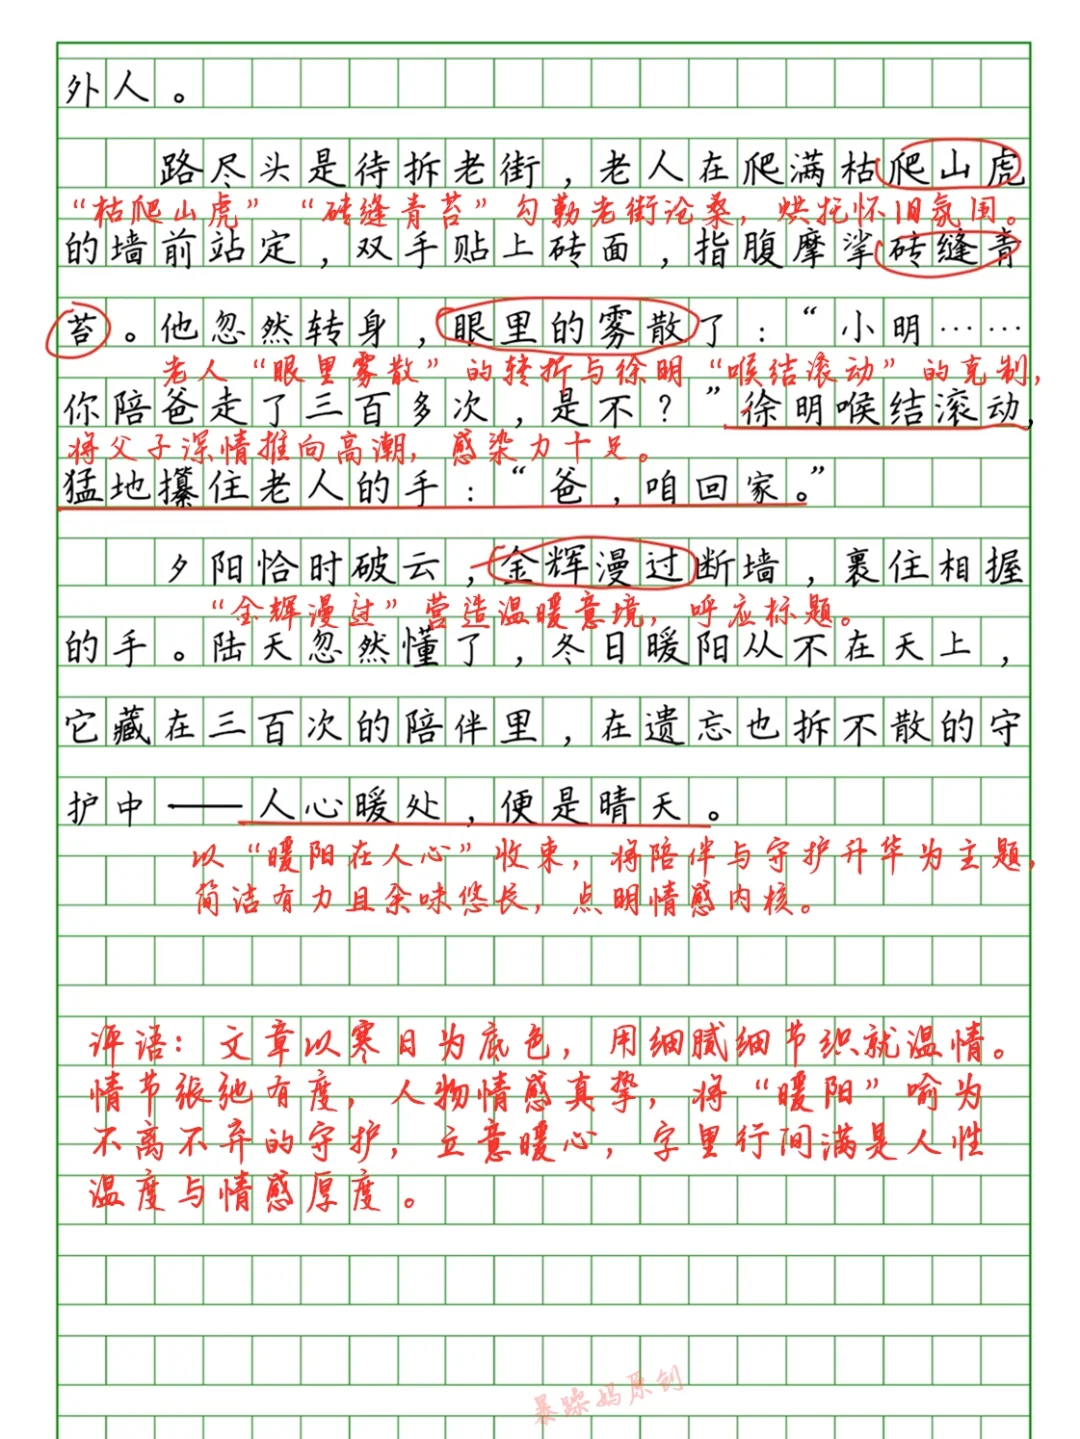 外人。
路尽头是待拆老街，老人在爬满枯爬山虎
“枯爬山虎”“砖缝青苔”勾勒老街沧桑，烘托怀旧氛围。
的墙前站定，双手贴上砖面，指腹摩挲砖缝青
苔。他忽然转身，眼里的雾散了：“小明……
老人“眼里雾散”的转折与徐明“喉结滚动”的克制，
你陪爸走了三百多次，是不？”徐明喉结滚动，
将父子深情推向高潮，感染力十足。
猛地攥住老人的手：“爸，咱回家。”
夕阳恰时破云，金辉漫过断墙，裹住相握
“金辉漫过”营造温暖意境，呼应标题。
的手。陆天忽然懂了，冬日暖阳从不在天上，
它藏在三百次的陪伴里，在遗忘也拆不散的守
护中——人心暖处，便是晴天。
以“暖阳在人心”收束，将陪伴与守护升华为主题，
简洁有力且余味悠长，点明情感内核。
评语：文章以寒日为底色，用细腻细节织就温情。
情节张弛有度，人物情感真挚，将“暖阳”喻为
不离不弃的守护，立意暖心，字里行间满是人性
温度与情感厚度。
暴躁妈原创